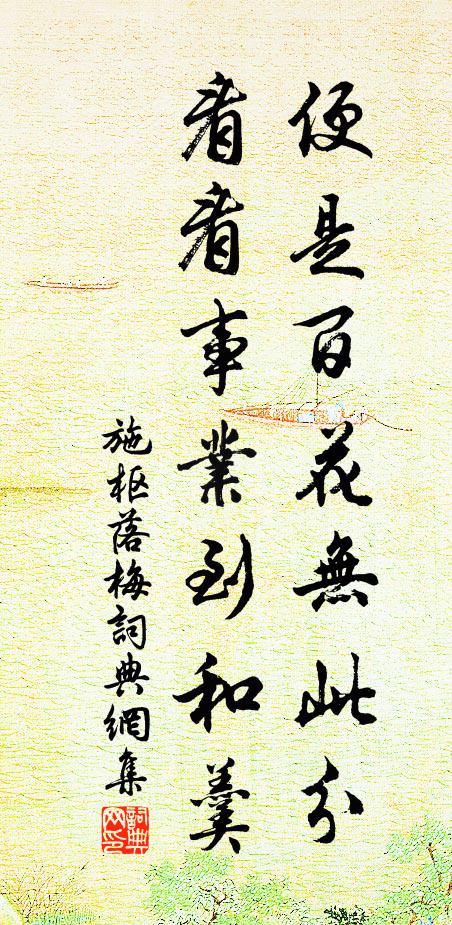 便是百花無此分
看看事業到和羹
施枢落梅詞典網集
詞典网印